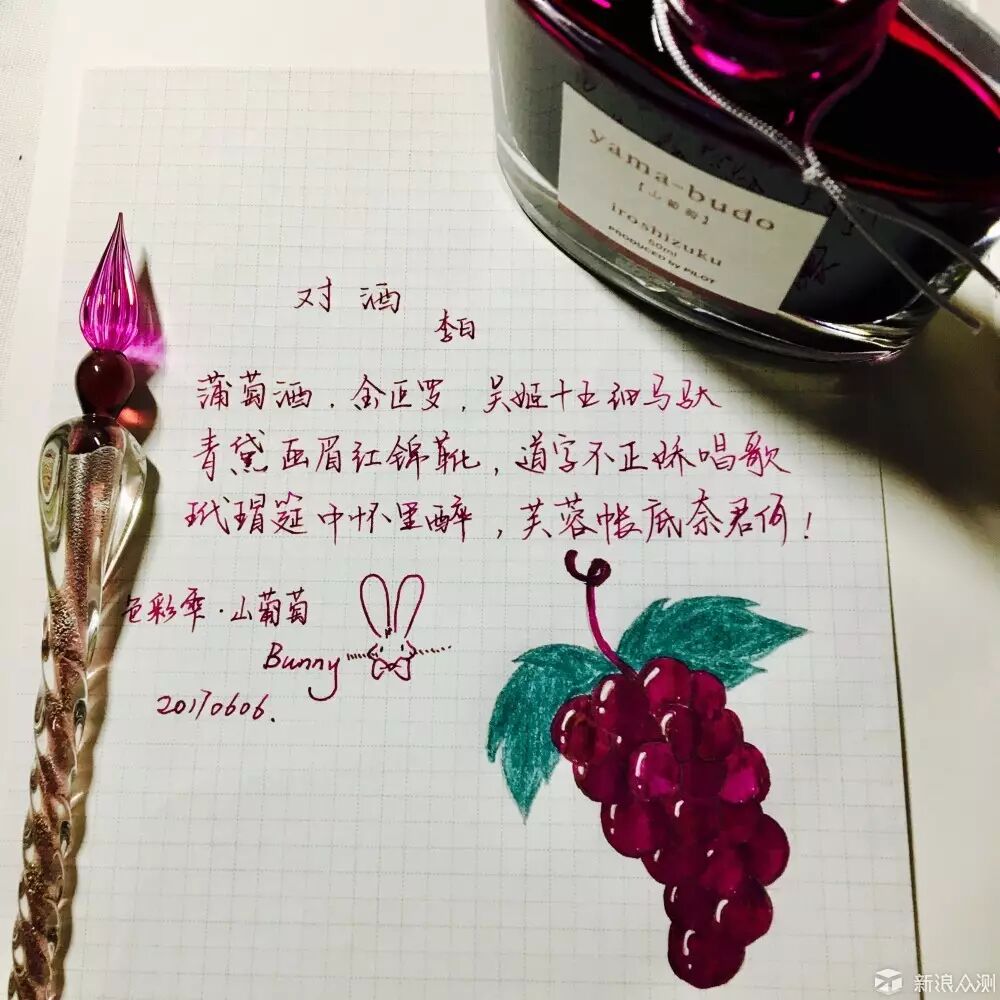 yama-budo
【山葡萄】
iroshizuku
50ml
PRODUCED by PILOT
对 酒
李白
蒲萄酒，金叵罗，吴姬十五细马驮
青黛画眉红锦靴，道字不正娇唱歌
玳瑁筵中怀里醉，芙蓉帐底奈君何！
色彩雫·山葡萄
Bunny
20170606.
新浪众测